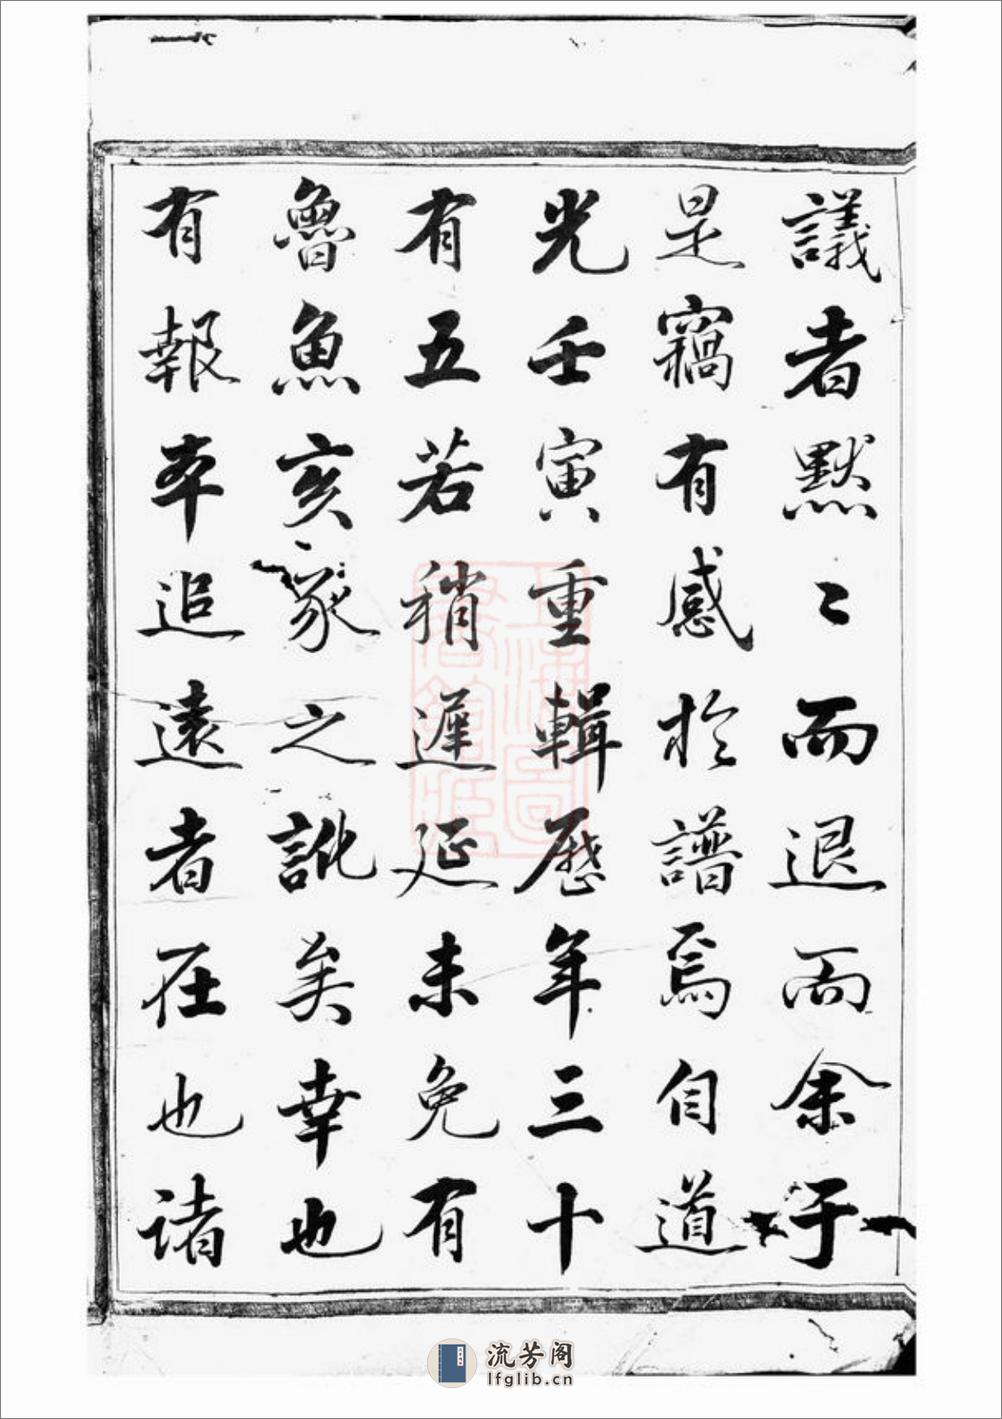 議者默〻而退而余于
是竊有感於譜焉自道
光壬寅重輯歷年三十
有五若稍遲延未免有
魯魚亥豕之訛矣幸也
有報本追遠者在也諸
上海圖書館藏
流芳阁
lfglib.cn